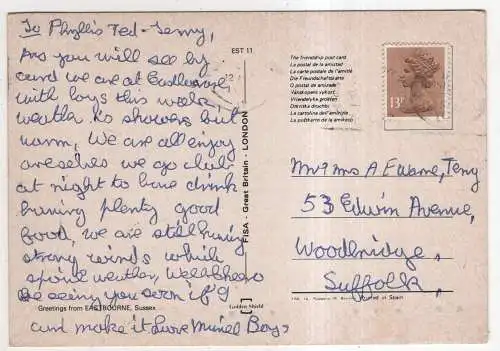 To Phyllis Ted - Terry,
As you will see by
card we are at Eastbourne,
with boys this week,
weather is showers but
warm, we are all enjoy
ourselves we go club
at night to have drink
having plenty good
food, we are still having
strong winds which
spoil weather, Well hope
be seeing you soon if 9
can make it Love Muriel Boys
Greetings from EASTBOURNE, Sussex
EST 11
FISA - Great Britain - LONDON
Golden Shield
The friendship post card
La postal de la amistad
La carte postale de l'amitié
Die Freundschaftskarte
O postal de amizade
Vanskapens vykort
Vriendelijke groeten
Dių riška drauchu
La cartolina dell'amicizia
La poŝtkarto de la amikeco
13P
Mr & Mrs A E Warne, Terry
53 Edwin Avenue,
Woodbridge,
Suffolk,
Printed in Spain